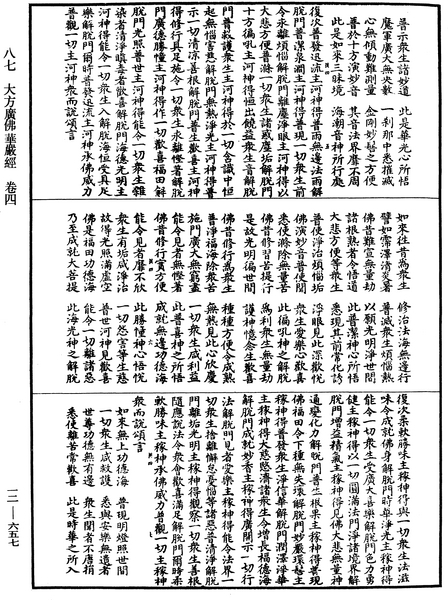 八七 大方廣佛華嚴經 卷四
普示眾生諸妙道 此是華光心所悟
魔軍廣大無央數 一剎那中悉摧滅
心無傾動難測量 金剛妙髻之方便
普於十方演妙音 其音法界靡不周
此是如來三昧境 海潮音神所行處
復次普發迅流主河神得普雨無邊法雨解
脫門普潔泉澗主河神得普現一切眾生前
令永離煩惱解脫門離塵淨眼主河神得以
大悲方便普滌一切眾生諸惑塵垢解脫門
十方遍吼主河神得恒出饒益眾生音解脫
門普救護眾生主河神得於一切含識中恒
起無惱害慈解脫門無熱淨光主河神得普
示一切清涼善根解脫門普生歡喜主河神
得修行具足施令一切眾生永離慳著解脫
門廣德勝幢主河神得作一切歡喜福田解
脫門光照普世主河神得能令一切眾生雜
染者清淨瞋毒者歡喜解脫門海德光明主
河神得能令一切眾生入解脫海恒受具足
樂解脫門爾時普發迅流主河神承佛威力
普觀一切主河神眾而說頌言
如來往昔為眾生 修治法海無邊行
譬如霈澤清炎暑 普滅眾生煩惱熱
佛昔難宣無量劫 以願光明淨世間
諸根熟者令悟道 此普潔神心所悟
大悲方便等眾生 悉現其前常化誘
普使淨治煩惱垢 淨眼見此深歡悅
佛演妙音普使聞 眾生愛樂心歡喜
悉使滌除無量苦 此遍吼神之解脫
佛昔修習菩提行 為利眾生無量劫
是故光明遍世間 護神憶念生歡喜
佛昔修行為眾生 種種方便令成熟
普淨福海除眾苦 無熱見此心欣慶
施門廣大無窮盡 一切眾生咸利益
能令見者無慳著 此普喜神之所悟
佛昔修行實方便 成就無邊功德海
能令見者靡不欣 此勝幢神心悟悅
眾生有垢咸淨治 一切怨害等生慈
故得光照滿虛空 普世河神見歡喜
佛是福田功德海 能令一切離諸惡
乃至成就大菩提 此海光神之解脫
復次柔軟勝味主稼神得與一切眾生法滋
味令成就佛身解脫門時華淨光主稼神得
能令一切眾生受廣大喜樂解脫門色力勇
健主稼神得以一切圓滿法門淨諸境界解
脫門增益精氣主稼神得見佛大悲無量神
通變化力解脫門普生根果主稼神得普現
佛福田令下種無失壞解脫門妙嚴環髻主
稼神得普發眾生淨信華解脫門潤澤淨華
主稼神得大慈愍濟諸眾生令增長福德海
解脫門成就妙香主稼神得廣開示一切行
法解脫門見者愛樂主稼神得能令法界一
切眾生捨離懈怠憂惱等諸惡普清淨解脫
門離垢光明主稼神得觀察一切眾生善根
隨應說法令眾會歡喜滿足解脫門爾時柔
軟勝味主稼神承佛威力普觀一切主稼神
眾而說頌言
如來無上功德海 普現明燈照世間
一切眾生咸救護 悉與安樂無遺者
世尊功德無有邊 眾生聞者不唐捐
悉使離苦常歡喜 此是時華之所入
一二—六五七